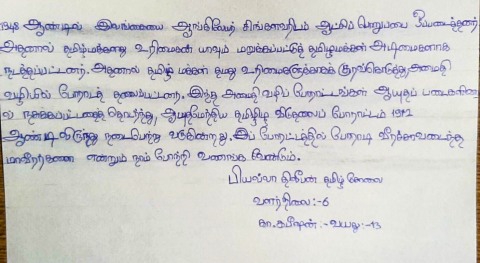 1948 ஆண்டில் இலங்கையை ஆங்கிலேயர் சிங்களவரிடம் ஆட்சிப் பொறுப்பை ஒப்படைத்தனர்.
அதனால் தமிழ்மக்களது உரிமைகள் யாவும் மறுக்கப்பட்டு தமிழ்மக்கள் அடிமைகளாக
நடத்தப்பட்டனர். அதனால் தமிழ் மக்கள் தமது உரிமைகளுக்காகக் குரல்கொடுத்து அமைதி
வழியில் போராடத் தலைப்பட்டனர். இந்த அமைதி வழிப் போராட்டங்கள் ஆயுதப் படைகளினா
ல் நசுக்கப்பட்டதைத் தொடர்ந்து ஆயுதமேந்திய தமிழீழ விடுதலைப் போராட்டம் 1972
ஆண்டிலிருந்து நடைபெற்று வருகின்றது. இப் போராட்டத்தில் போராடி வீரச்சாவடைந்த
மாவீரர்களை என்றும் நாம் போற்றி வணங்க வேண்டும்.
தமிழ்
வளர்நிலை:-6
கா.கபீஷன்:-வயது:-13